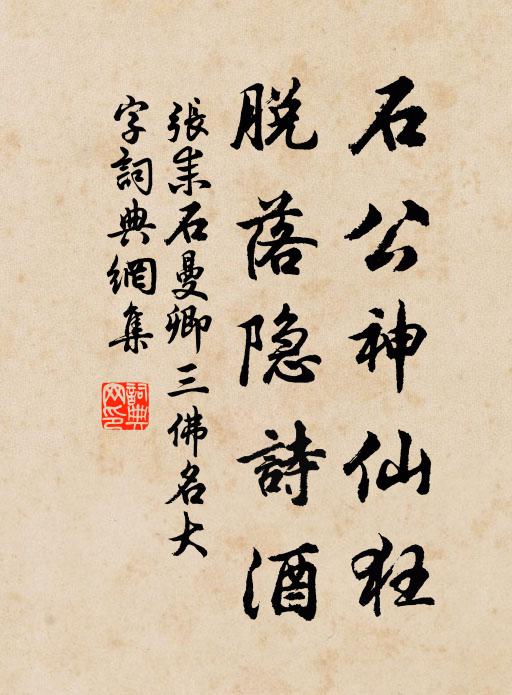 石公神仙狂
脱落隐詩酒
張耒石曼卿三佛名大
字詞典網集
詞典
网印